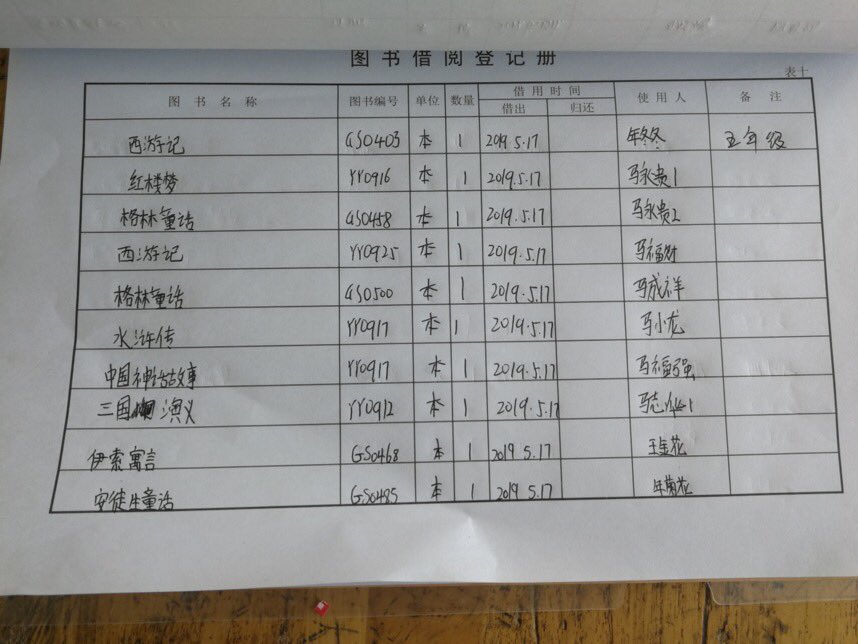 图书借阅登记册
表十
图书名称 图书编号 单位 数量 借用时间 使用人 备注
借出 归还
西游记 GS0403 本 1 2019.5.17 年冬冬 五年级
红楼梦 YY0916 本 1 2019.5.17 马永贵1
格林童话 GS0458 本 1 2019.5.17 马永贵2
西游记 YY0925 本 1 2019.5.17 马福财
格林童话 GS0500 本 1 2019.5.17 马成祥
水浒传 YY0917 本 1 2019.5.17 马小龙
中国神话故事 YY0917 本 1 2019.5.17 马福强
三国演义 YY0912 本 1 2019.5.17 马志
伊索寓言 GS0468 本 1 2019 5.17 王金花
安徒生童话 GS0485 本 1 2019 5.17 年菊花